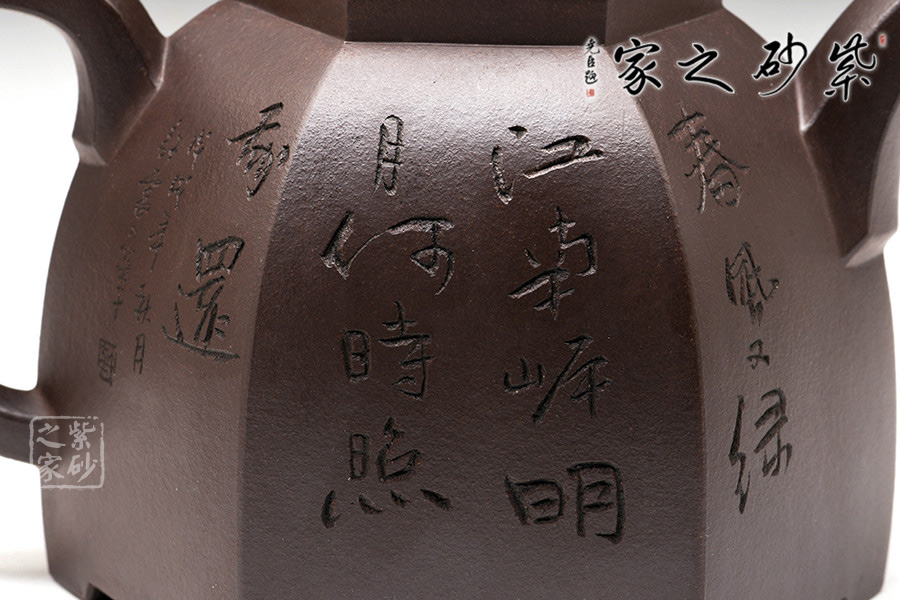 紫砂之家
春風又绿
江南岸明
月何時照
我還
紫砂
之家